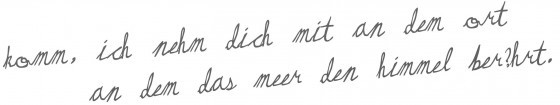 komm, ich nehm dich mit an dem ort
an dem das meer den himmel ber?hrt.